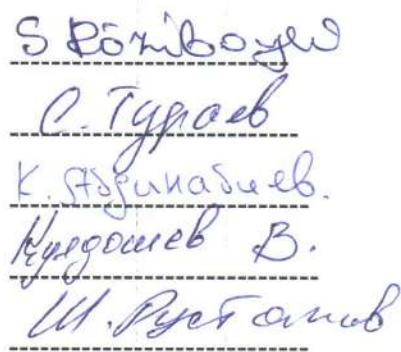 S Rōziboyev
С. Тураев
К. Абдинабиев.
Нулдошев В.
Ш. Рустамов